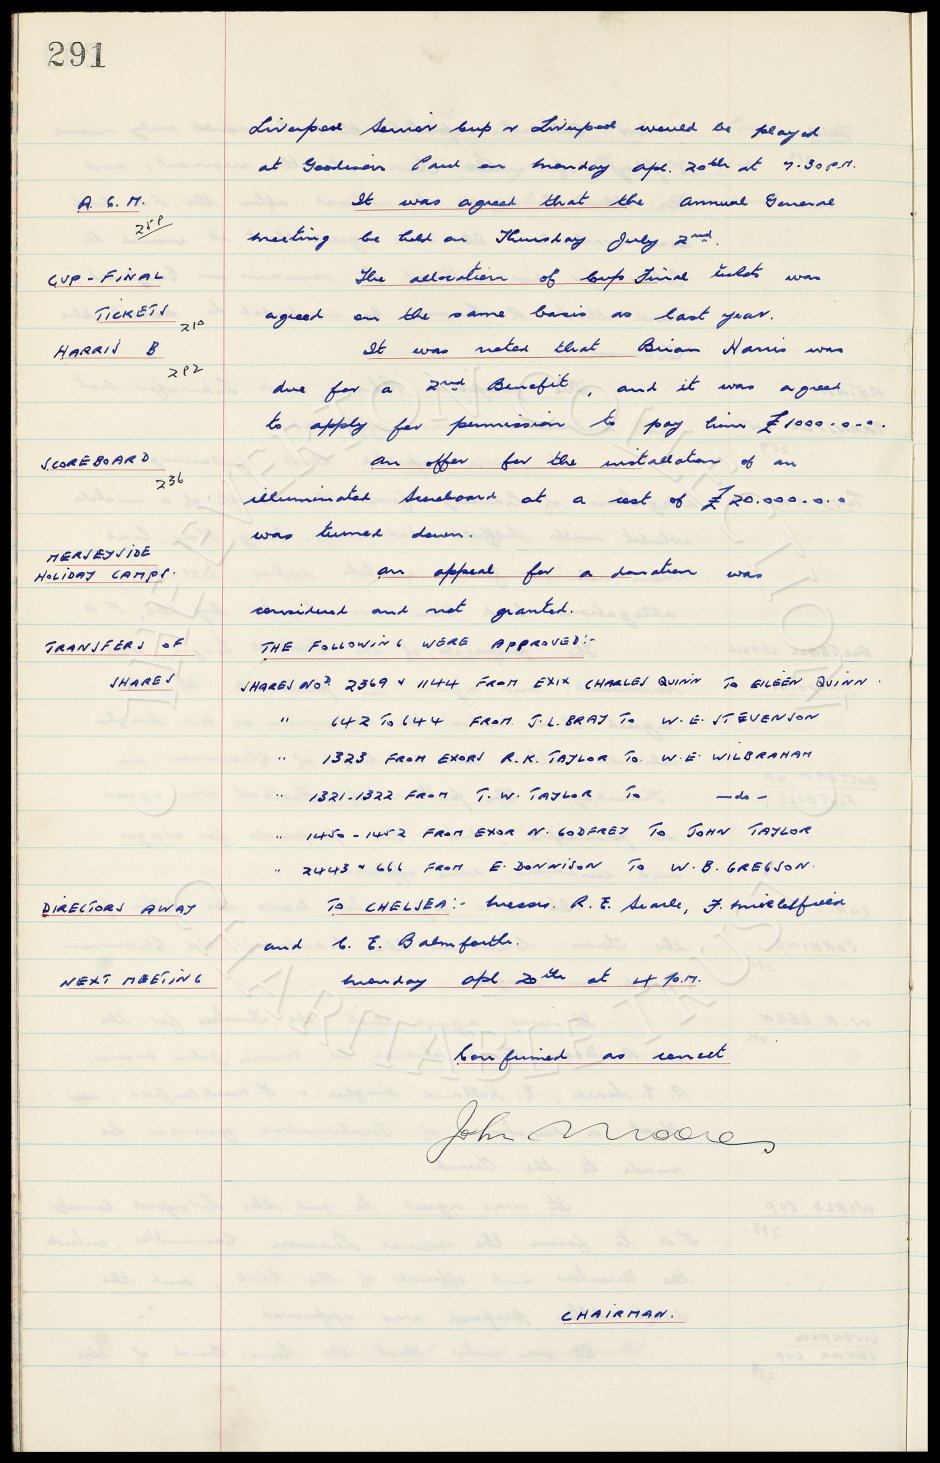 291
Liverpool Senior Cup v Liverpool would be played
at Goodison Park on Monday Apl. 20th at 7.30 P.M.
A. G. M. It was agreed that the Annual General
258
meeting be held on Thursday July 2nd.
CUP-FINAL The allocation of Cup Final tickets was
TICKETS agreed on the same basis as last year.
210
HARRIS B It was noted that Brian Harris was
282
due for a 2nd Benefit, and it was agreed
to apply for permission to pay him £1000.0.0.
SCOREBOARD An offer for the installation of an
236
illuminated Scoreboard at a cost of £20.000.0.0
was turned down.
MERSEYSIDE
HOLIDAY CAMPS. An appeal for a donation was
considered and not granted.
TRANSFERS OF THE FOLLOWING WERE APPROVED:-
SHARES SHARES NOS 2369 & 1144 FROM EXIX CHARLES QUINN TO EILEEN QUINN.
" 642 TO 644 FROM J.L. BRAY TO W.E. STEVENSON
" 1323 FROM EXORS R.K. TAYLOR TO W.E. WILBRAHAM
" 1321-1322 FROM T.W. TAYLOR TO -do-
" 1450-1452 FROM EXOR N. GODFREY TO JOHN TAYLOR
" 2443 & 666 FROM E. DONNISON TO W.B. GREGSON.
DIRECTORS AWAY TO CHELSEA:- Messrs. R.E. Searle, F. Micklesfield
and C. E. Balmforth.
NEXT MEETING Monday Apl 20th at 4 p.m.
Confirmed as correct
John Moores
CHAIRMAN.
EVERTON COLLECTION
CHARITABLE TRUST